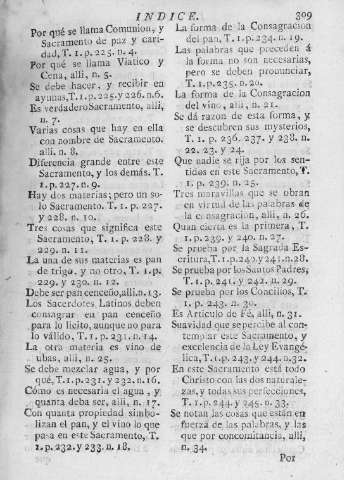 INDICE. 309
Por qué se llama Comunion, y
Sacramento de paz y cari-
dad, T. 1. p. 225. n. 4.
Por qué se llama Viatico y
Cena, alli, n. 5.
Se debe hacer, y recibir en
ayunas, T. 1. p. 225. y 226. n. 6.
Es verdadero Sacramento, alli,
n. 7.
Varias cosas que hay en ella
con nombre de Sacramento.
alli. n. 8.
Diferencia grande entre este
Sacramento, y los demás. T.
1. p. 227. n. 9.
Hay dos materias; pero un so-
lo Sacramento. T. 1. p. 227.
y 228. n. 10.
Tres cosas que significa este
Sacramento, T. 1. p. 228. y
229. n. 11.
La una de sus materias es pan
de trigo, y no otro, T. 1. p.
229. y 230. n. 12.
Debe ser pan cenceño, alli. n. 13.
Los Sacerdotes Latinos deben
consagrar en pan cenceño
para lo licito, aunque no para
lo válido, T. 1. p. 231. n. 14.
La otra materia es vino de
ubas, alli, n. 25.
Se debe mezclar agua, y por
qué, T. 1. p. 231. y 232. n. 16.
Cómo es necesaria el agua, y
quanta deba ser, alli, n. 17.
Con quanta propiedad simbo-
lizan el pan, y el vino lo que
pasa en este Sacramento, T.
1. p. 232. y 233. n. 18.
La forma de la Consagracion
del pan, T. 1. p. 234. n. 19.
Las palabras que preceden á
la forma no son necesarias,
pero se deben pronunciar,
T. 1. p. 235. n. 20.
La forma de la Consagracion
del vino, alli, n. 21.
Se dá razon de esta forma, y
se descubren sus mysterios,
T. 1. p. 236. 237. y 238. n.
22. 23. y 24.
Que nadie se rija por los sen-
tidos en este Sacramento, T.
1. p. 239. n. 25.
Tres maravillas que se obran
en virtud de las palabras de
la consagracion, alli, n. 26.
Quan cierta es la primera, T.
1. p. 239. y 240. n. 27.
Se prueba por la Sagrada Es-
critura, T. 1. p. 240. y 241. n. 28.
Se prueba por los Santos Padres,
T. 1. p. 241. y 242. n. 29.
Se prueba por los Concilios, T.
1. p. 243. n. 30.
Es Articulo de Fé, alli, n. 31.
Suavidad que se percibe al con-
templar este Sacramento, y
excelencia de la Ley Evangé-
lica, T. 1. p. 243. y 244. n. 32.
En este Sacramento está todo
Christo con las dos naturale-
zas, y todas sus perfecciones,
T. 1. p. 244. y 245. n. 33.
Se notan las cosas que están en
fuerza de las palabras, y las
que por concomitancia, alli,
n. 34.
Por